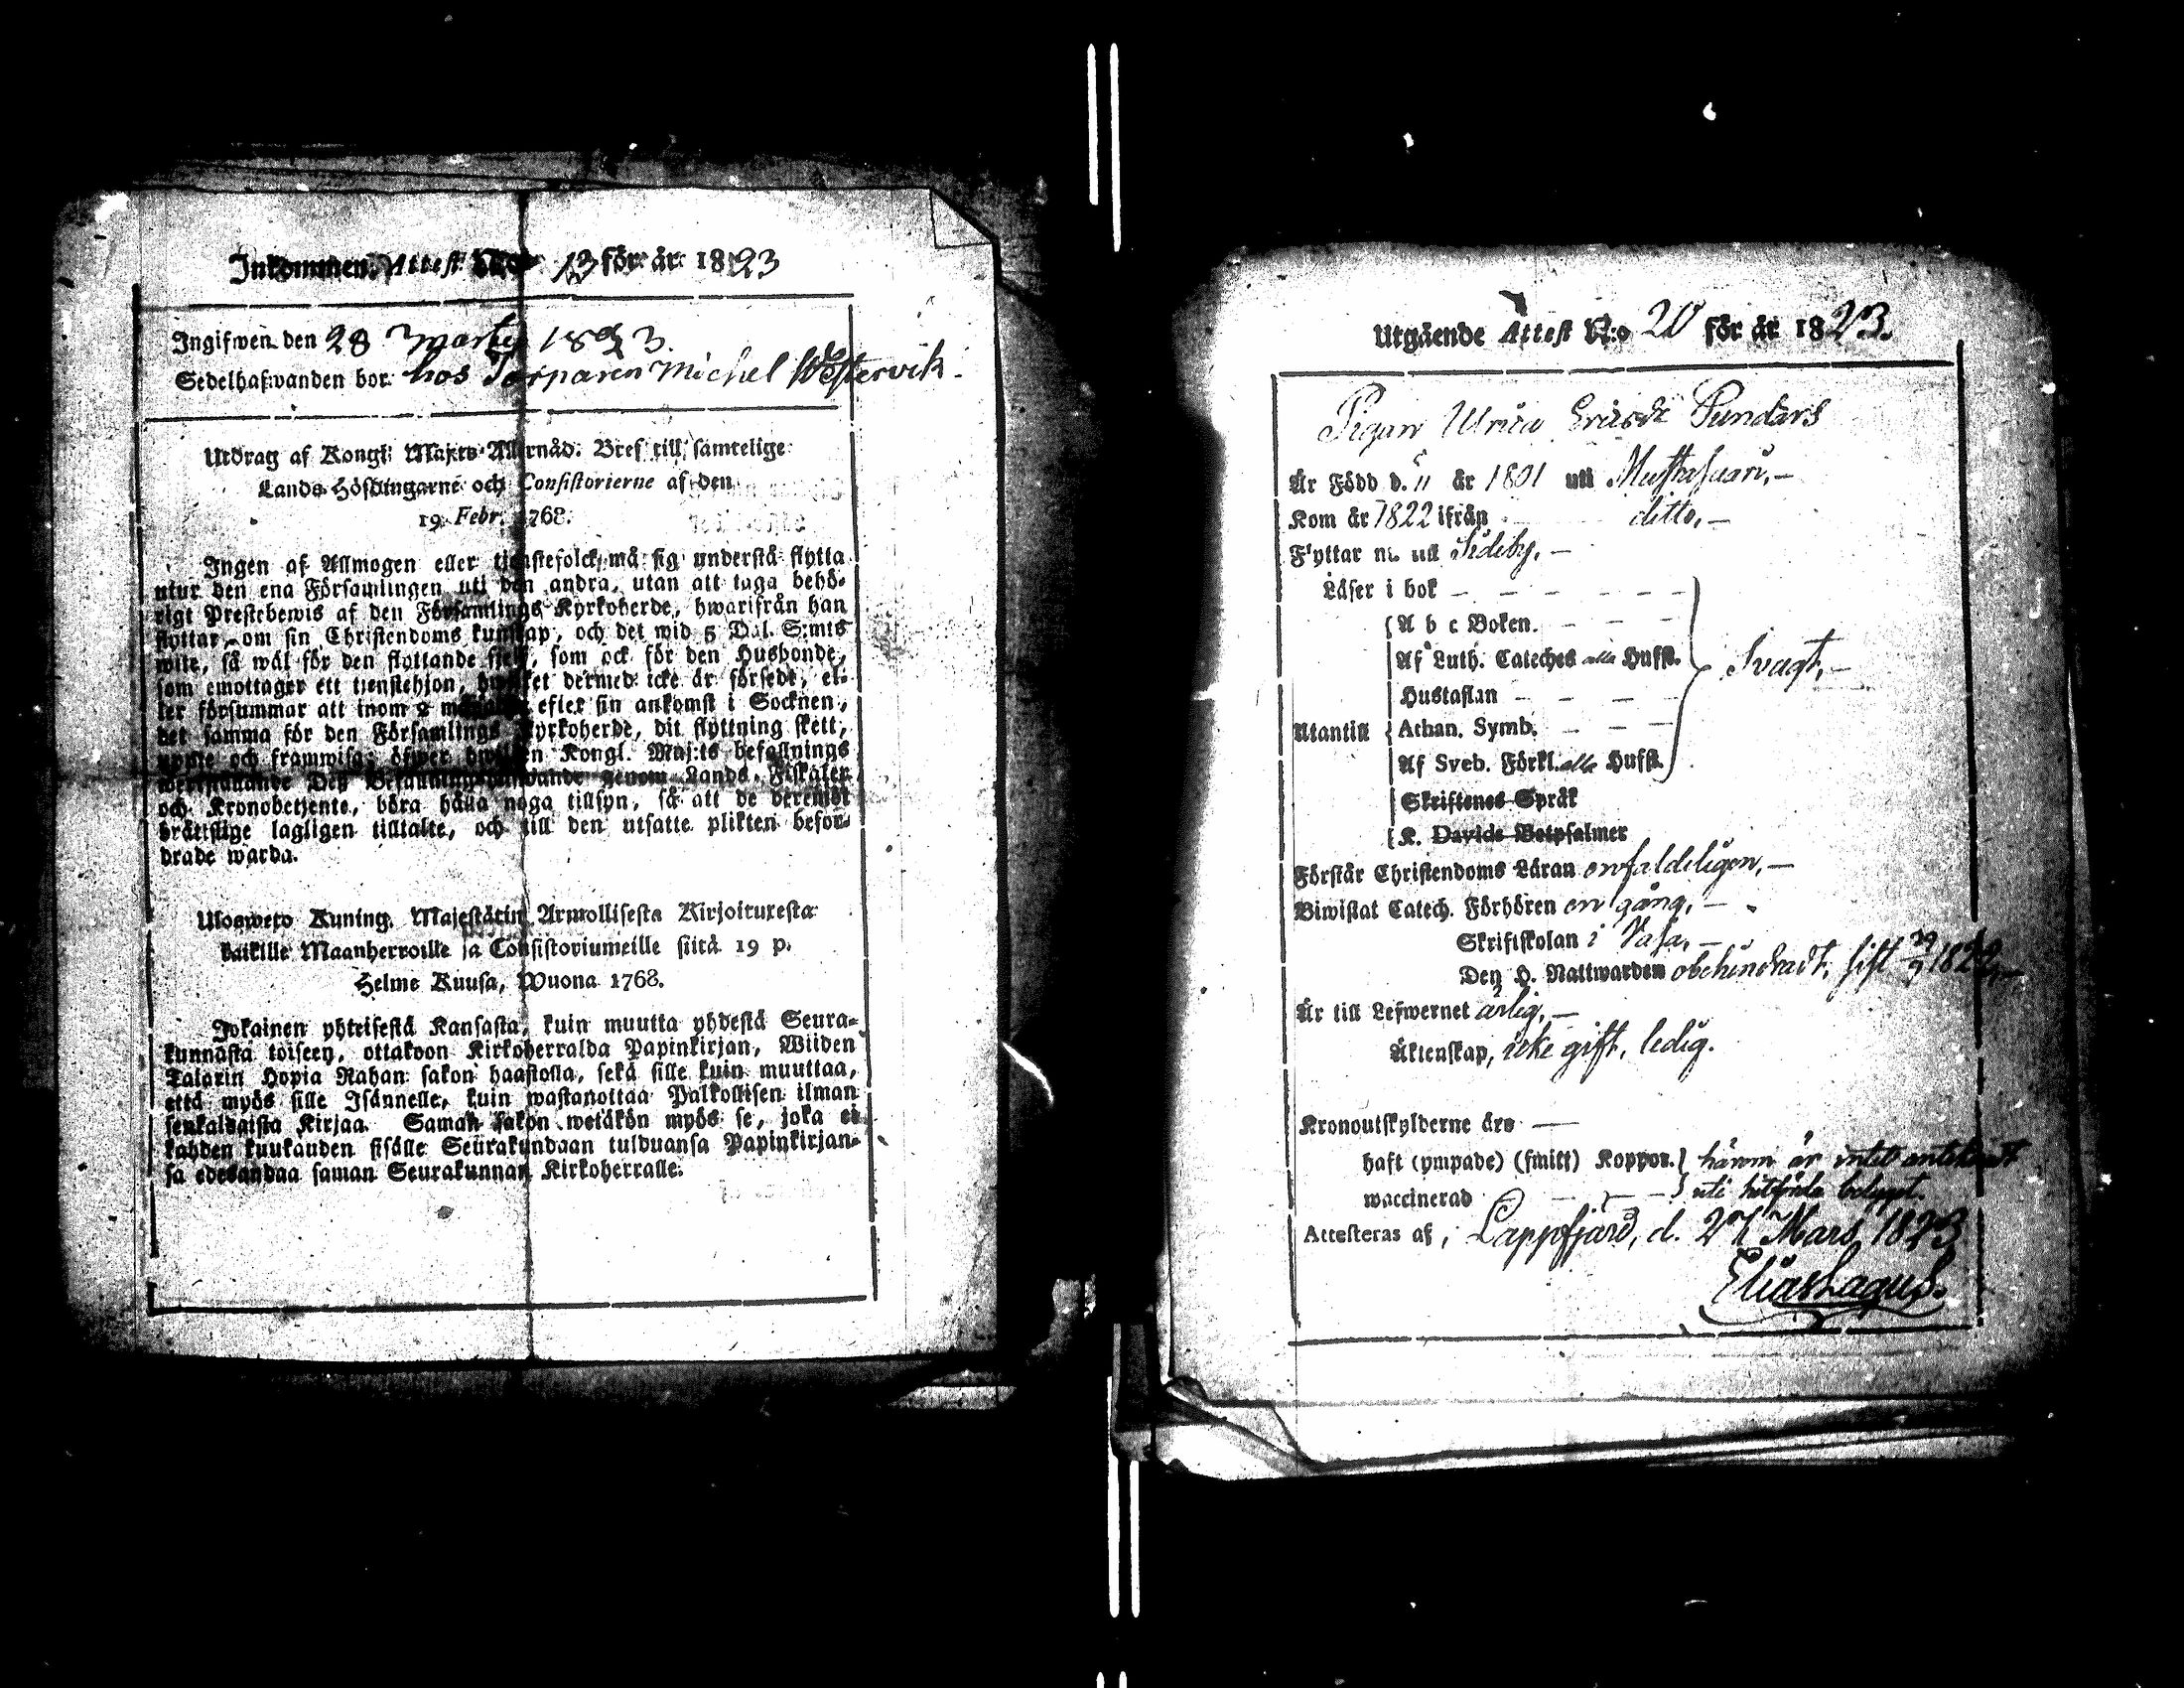 Inkommen Attest N:o 13 för år 1823
Ingifwen den 28 Marty 1823.
Sedelhafwanden bor hos Torparen Michel Westervik.
Utdrag af Kongl. Maj:ts Allernåd. Bref till samtelige
Lands-Höfdingarne och Consistorierne af den
19 Febr. 1768.
Ingen af Allmogen eller tjenstefolck må sig understå flytta
utur den ena Församlingen uti den andra, utan att taga behö-
rigt Prestebewis af den Församlings Kyrkoherde, hwarifrån han
flyttar, om sin Christendoms kunskap, och det wid 5 Dal. S:mts
wite, så wäl för den flyttande sielf, som ock för den Husbonde,
som emottager ett tjenstehjon, hwilket dermed icke är försedt, el-
ler försummar att inom 2 månader efter sin ankomst i Socknen,
det samma för den Församlings Kyrkoherde, dit flyttning skett,
uppte och framwisa; öfwer hwilken Kongl. Maj:ts befallnings
werkställande Dess Befallningshafwande genom Lands-Fiskaler
och Kronobetjente, böra hålla noga tillsyn, så att de deremot
bråttslige lagligen tilltalte, och till den utsatte plikten befor-
drade warda.
Ulosweto Kuning. Majestätin Armollisesta Kirjoituxesta
kaikille Maanherroille ja Consistoriumeille siitä 19 p.
Helme Kuusa, Wuona 1768.
Jokainen yhteisestä Kansasta, kuin muutta yhdestä Seura-
kunnasta toiseen, ottakoon Kirkoherralda Papinkirjan, Wiiden
Talarin Hopia Rahan sakon haastolla, sekä sille kuin muuttaa,
että myös sille Isännelle, kuin wastanottaa Palkollisen ilman
senkaldaista Kirjaa. Saman sakon wetäkön myös se, joka ei
kahden kuukauden sisälle Seurakundaan tulduansa Papinkirjan-
sa edesandaa saman Seurakunnan Kirkoherralle.
Utgående Attest N:o 20 för år 1823.
Pigan Ulrica Ersdr Sundars
Är Född d. 11 år 1801 uti Mustasaari,—
Kom år 1822 ifrån ditto,—
Flyttar nu till Sideby,—
Läser i bok — — — — — —
A b c Boken. — — —
Af Luth. Cateches alla Hufst. Svagt,—
Hustaflan — — — —
Utantill Athan. Symb. — — —
Af Sveb. Förkl. alla Hufst.
Skriftenes Språk
K. Davids Botpsalmer
Förstår Christendoms Läran enfaldeligen,—
Biwistat Catech. Förhören en gång,—
Skriftskolan i Vasa,—
Den H. Nattwarden obehindradt, sist
Är till Lefwernet ärlig,—
Äktenskap, icke gift, ledig.
Kronoutskylderne äro —
haft (ympade) (smitt) Koppor. härom är intet anteknat
waccinerad — — — uti hitförda betyget.
Attesteras af, Lappfjärd, d. 27 Mars 1823
Elias Lagus.